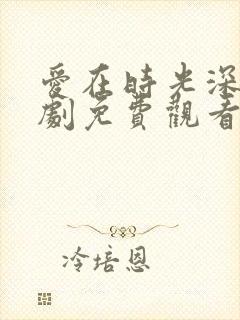 愛在時光深
劇免費觀看
冷培恩